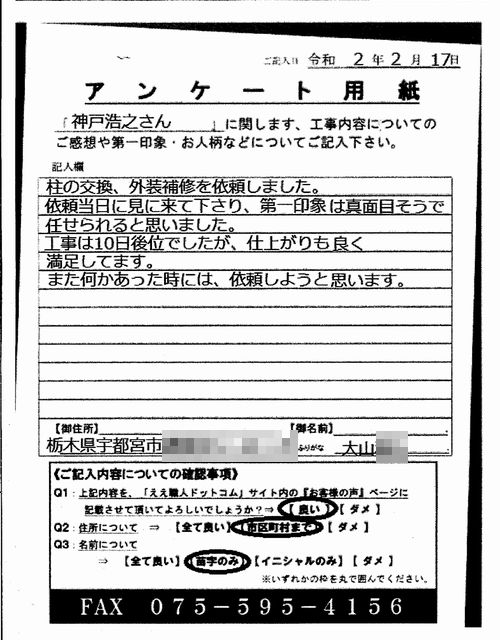 ご記入日 令和 2年2月17日
アンケート用紙
「神戸浩之さん 」に関します、工事内容についての
ご感想や第一印象・お人柄などについてご記入下さい。
記入欄
柱の交換、外装補修を依頼しました。
依頼当日に見に来て下さり、第一印象は真面目そうで
任せられると思いました。
工事は10日後位でしたが、仕上がりも良く
満足してます。
また何かあった時には、依頼しようと思います。
【御住所】 【御名前】
栃木県宇都宮市 ふりがな 大山
《ご記入内容についての確認事項》
Q1：上記内容を、「ええ職人ドットコム」サイト内の『お客様の声』ページに
記載させて頂いてよろしいでしょうか？⇒【 良い 】【 ダメ 】
Q2：住所について ⇒ 【全て良い】【市区町村まで】【 ダメ 】
Q3：名前について
⇒ 【全て良い】【苗字のみ】【イニシャルのみ】【 ダメ 】
※いずれかの枠を丸で囲んでください。
FAX 075-595-4156